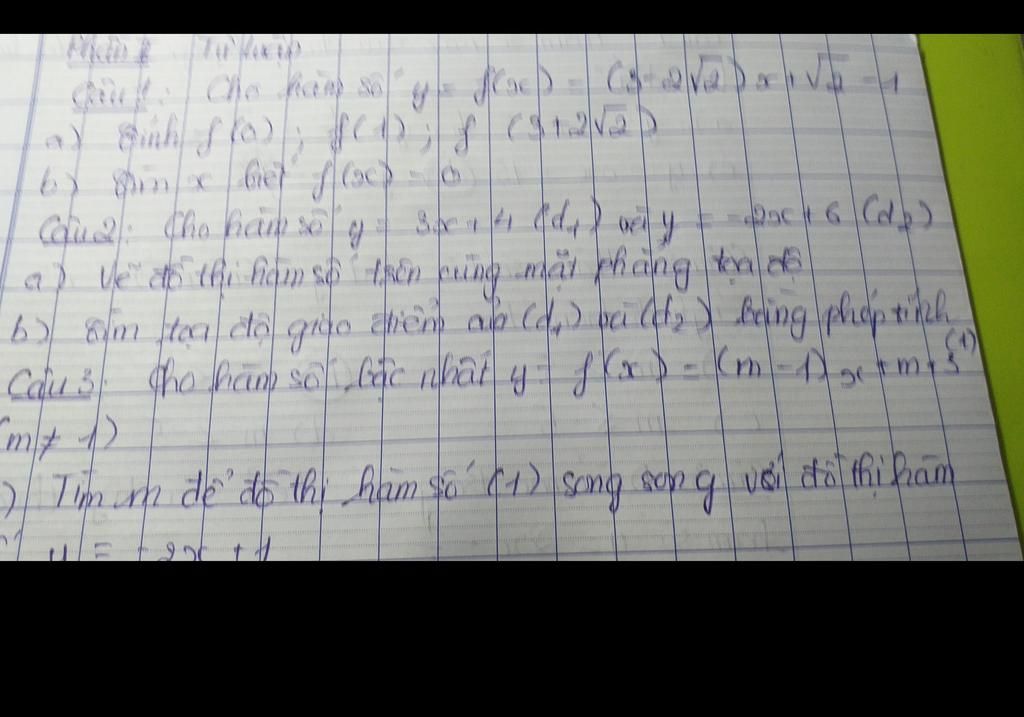 Phần Tự luận
Câu 1: Cho hàm số y = f(x) = (3 - 2√2)x + √2 - 1
a) Tính f(0); f(1); f(3+2√2)
b) Tìm x biết f(x) = 0
Câu 2: Cho hàm số y = 3x + 4 (d₁) và y = -2x + 6 (d₂)
a) Vẽ đồ thị hàm số trên cùng mặt phẳng tọa độ
b) Tìm tọa độ giao điểm (d₁) (d₂) bằng phép tính
Câu 3: Cho hàm số bậc nhất y = f(x) = (m - 1)x + m + 3 (1)
(m ≠ 1)
) Tìm m để đồ thị hàm số (1) song song với đồ thị hàm
y = - 2x + 1